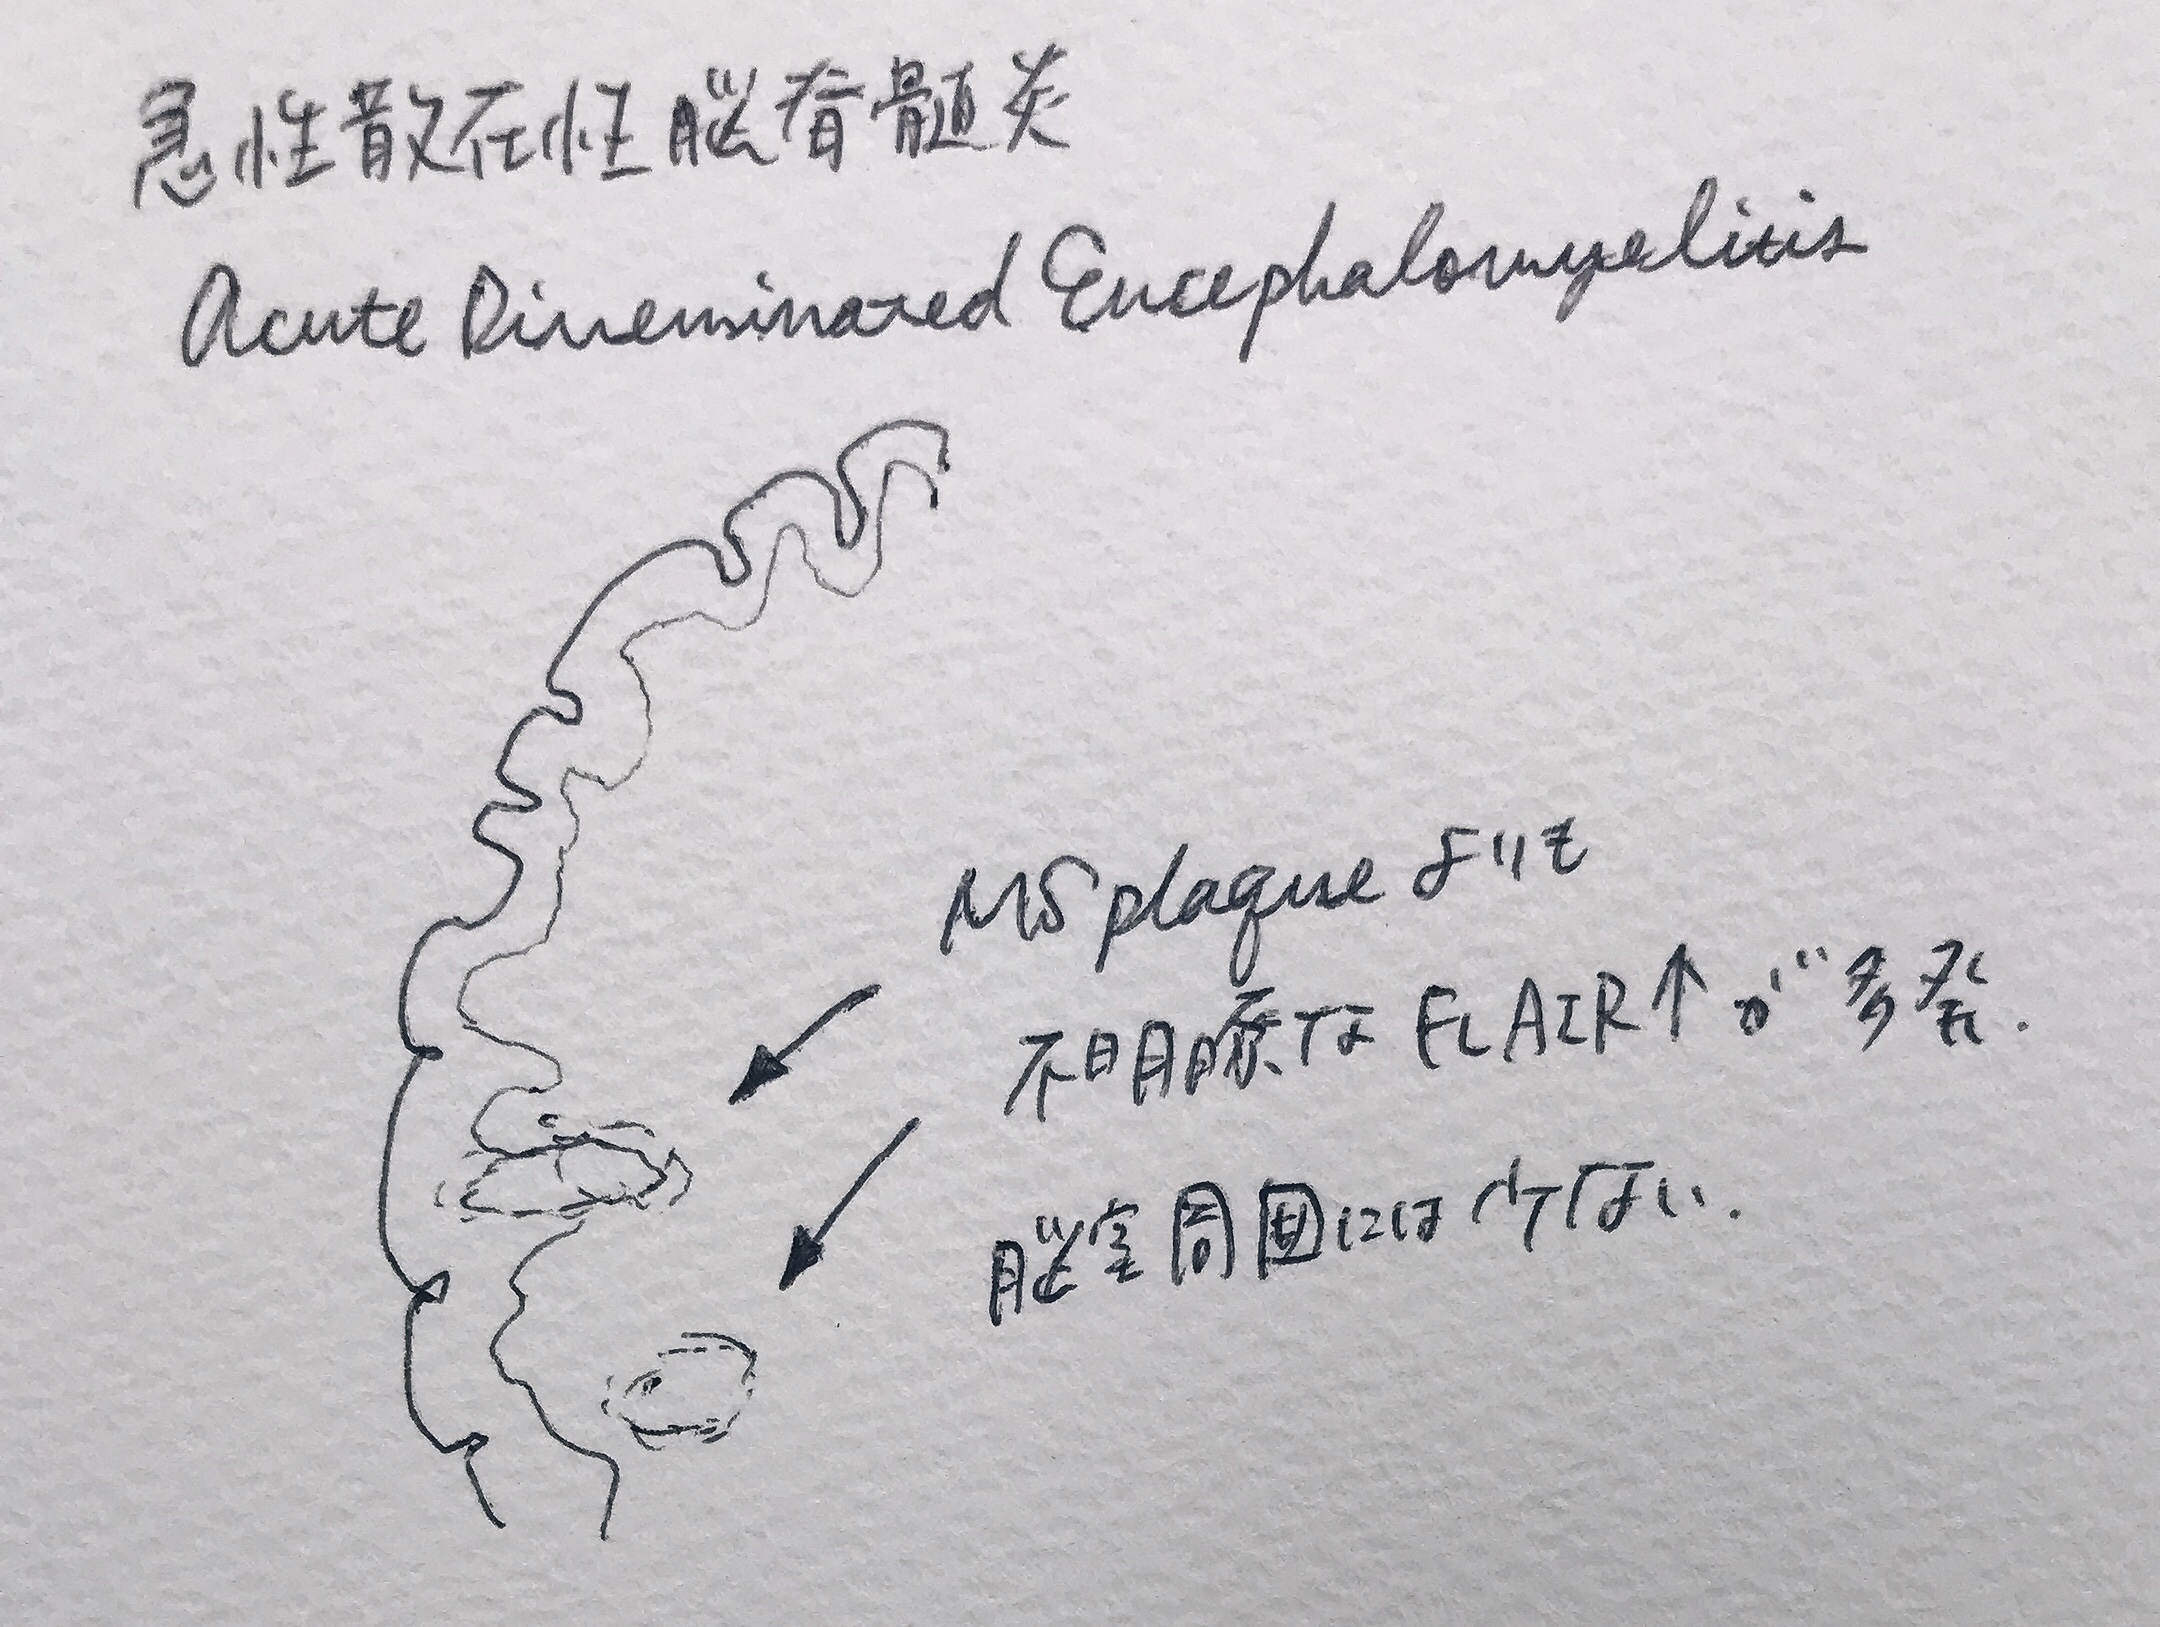 急性散在性脳脊髄炎
Acute Disseminated Encephalomyelitis
MS plaque よりも
不明瞭な FLAIR↑が多発.
脳室周囲には少ない.